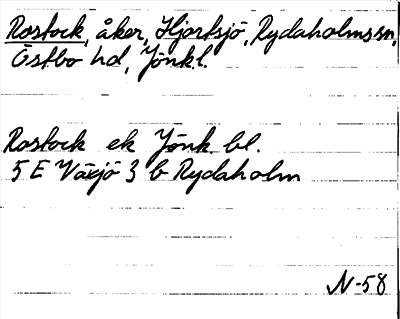 Rostock, åker, Hjortsjö, Rydaholms sn,
Östbo hd, Jönk.l.
Rostock ek Jönk. bl.
5 E Växjö 3 b Rydaholm
N-58